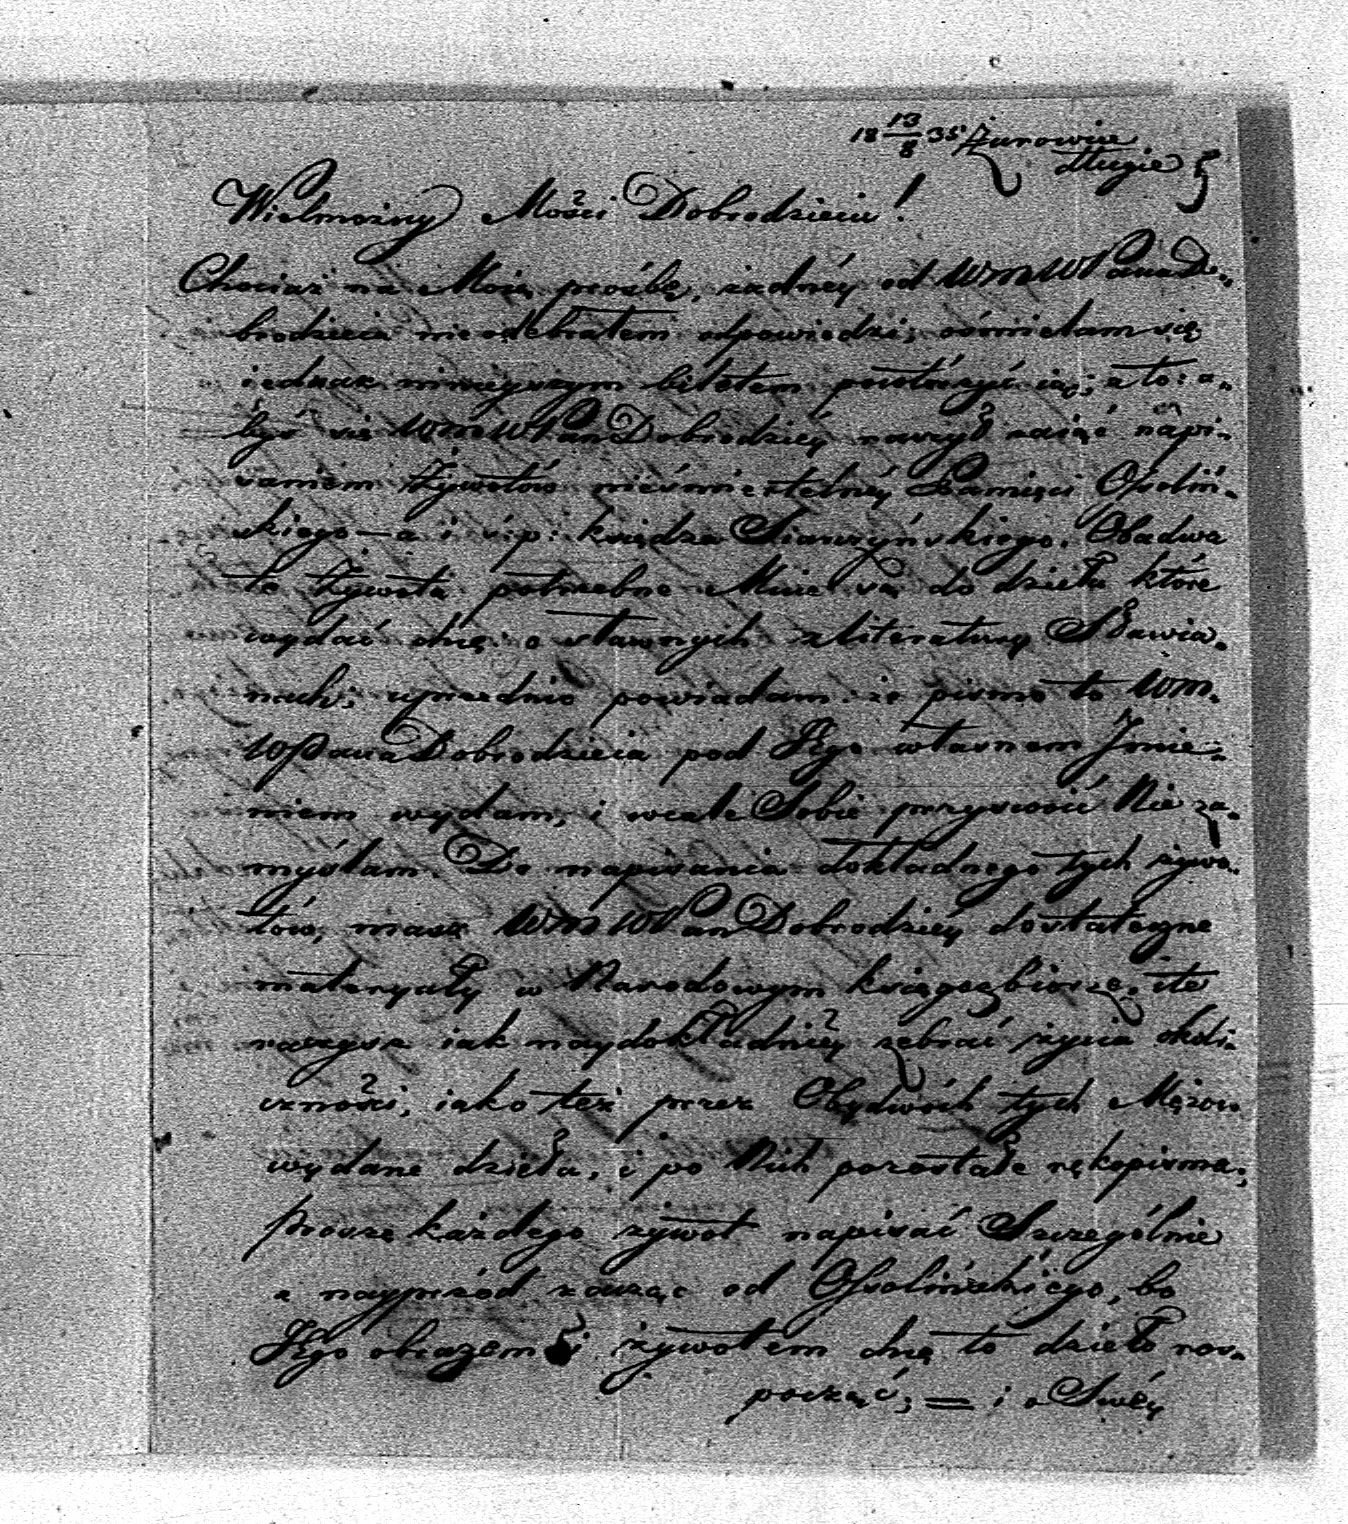 18 13/8 35 Żurowice
długie
Wielmożny Mości Dobrodzieiu!
Chociaż na Moią prośbę, żadnéy od WmWPana Do-
brodzieia nieodebrałem odpowiedzi; ośmielam się
iednak ninieyszym biletem powtórzyć ią; a to: a-
byś się WmWPan Dobrodziéy raczył zaiąć napi-
saniem Żywotów nieśmiertelnéy Pamięci Ossoliń-
skiego — a i ś: p: księdza Siarczyńskiego. Obadwa
te Żywota potrzebne Mnie są do dzieła które
wydać chcę o sławnych z literatury Sławia-
nach; uprzednio powiadam że pismo to Wm-
WPana Dobrodzieia pod Jego własnem Jmie-
niem wydam, i wcale Sobie przyswoić Nie za-
myślam. Do napisania dokładnego tych żywo-
tów, masz WmWPan Dobrodziéy dostateczne
materyały w Narodowym księgozbiorze, ite
raczysz iak naydokładniéy zebrać życia okoli-
czności, iako też przez Obydwóch tych Mężów
wydane dzieła, i po Nich pozostałe rękopisma;
Proszę każdego żywot napisać Szczególnie
a nayprzód zacząć od Ossolińskiego, bo
Jego obrazem i żywotem chcę to dzieło roz-
począć; = i o Swéy